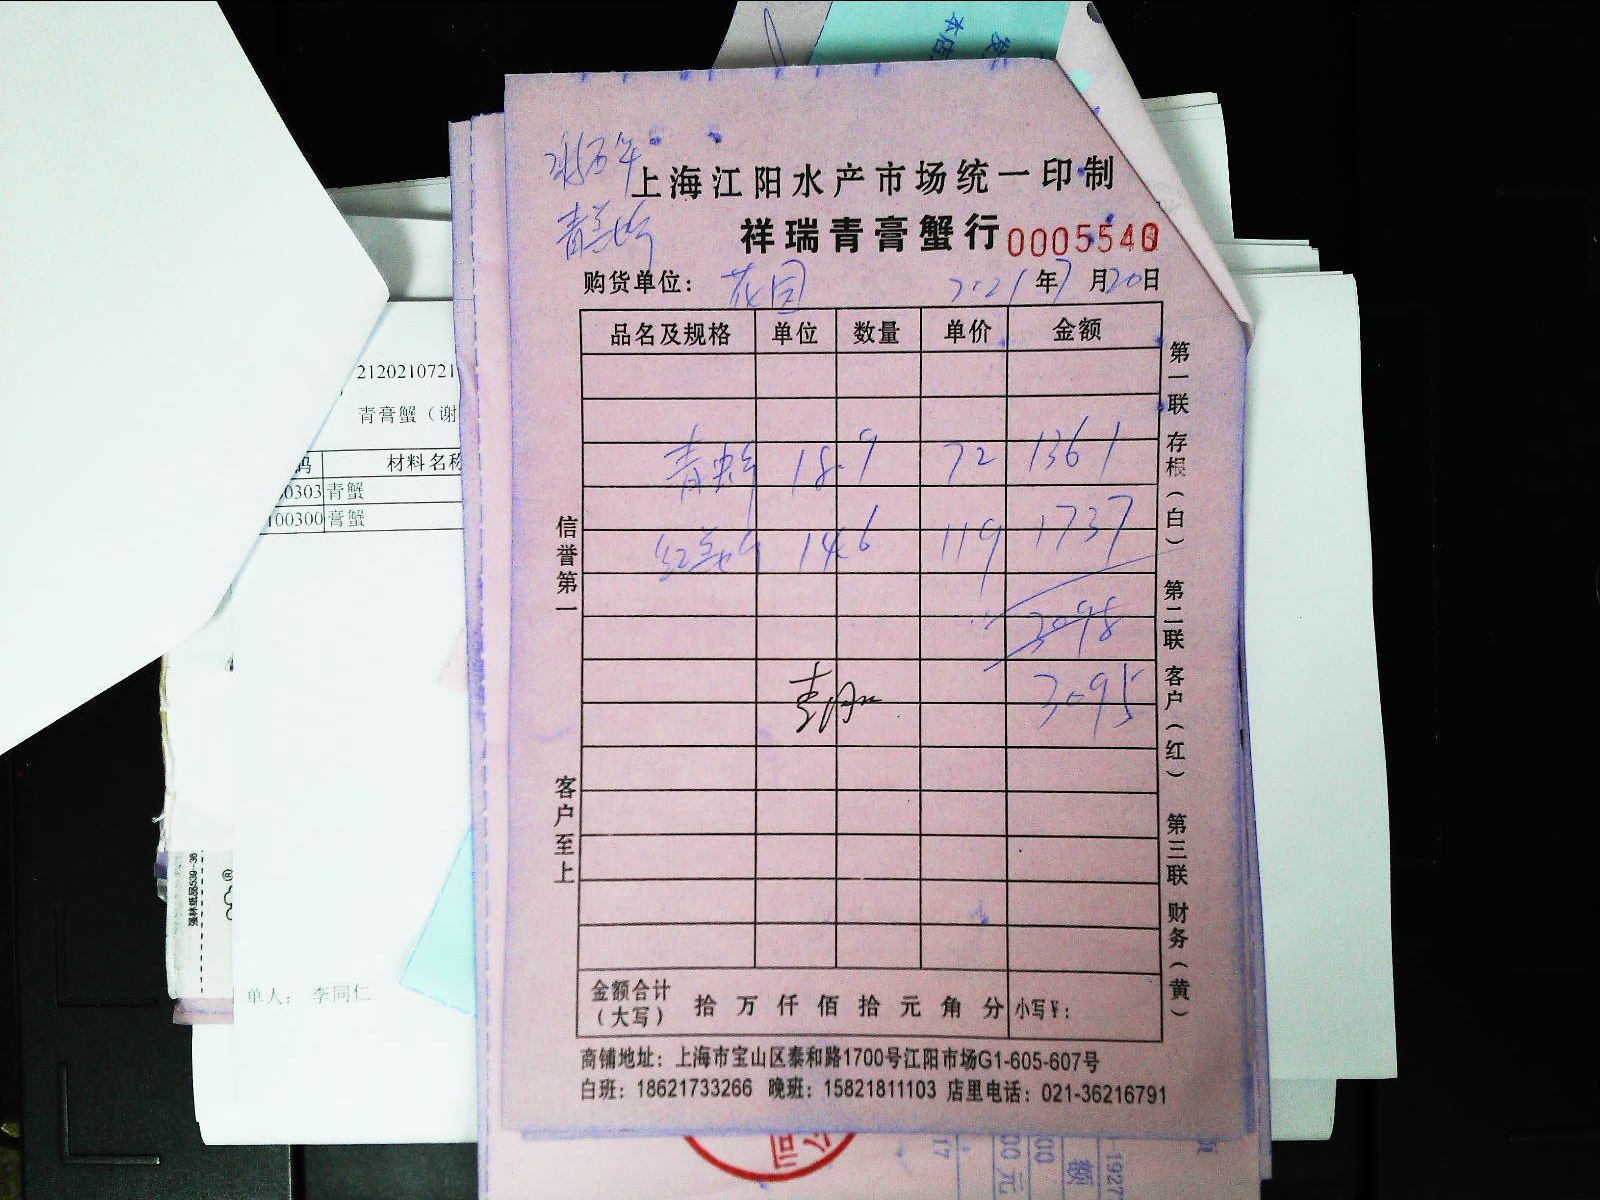 本店
上海江阳水产市场统一印制
祥瑞青膏蟹行 0005540
购货单位： 花园 2021年7月20日
品名及规格 单位 数量 单价 金额
青蟹 18.9 72 1361
红膏蟹 14.6 119 1737
3098
3095
金额合计（大写） 拾 万 仟 佰 拾 元 角 分 小写¥：
商铺地址：上海市宝山区泰和路1700号江阳市场G1-605-607号
白班：18621733266 晚班：15821811103 店里电话：021-36216791
信誉第一
客户至上
第一联 存根（白）
第二联 客户（红）
第三联 财务（黄）
2120210721
青膏蟹（谢
码 材料名称
0303 青蟹
100300 膏蟹
单人： 李同仁